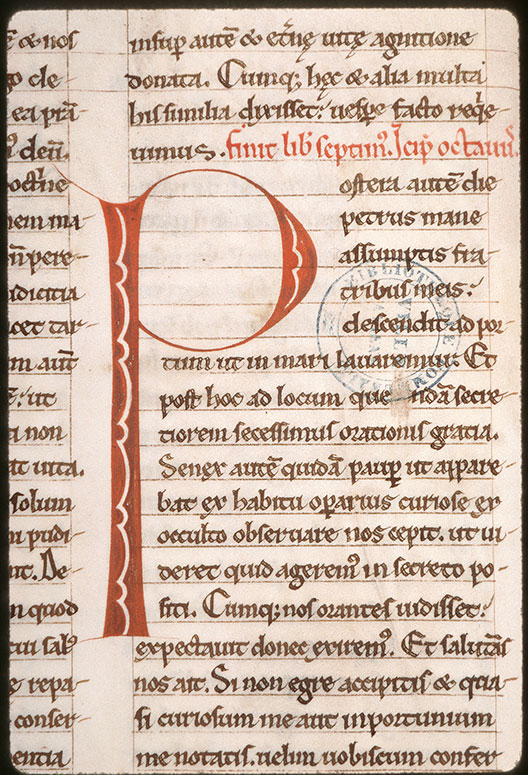 & nos
go cle-
ea prā-
deū.
nem ma-
n̄ pere-
cet tar-
m aūt
ut
a non
at uita.
solum
m pudi-
ut. De-
m quod
cui sal⁹
e repa-
conser-
entia
insup̱ autē & et̄ne uite agnitione
donata. Cumq; hęc & alia multa
his similia dixisset: uesp̱e facto req̇e-
uimus. finit lib̄ septim⁹. Jcip̄ octauu⁹.
Postera autē die
petrus mane
assumptis fra-
tribus meis:
descendit ad por-
tum ut in mari lauaremur. Et
post hoc ad locum quendā secre-
tiorem secessimus orationis gratia.
Senex autē quidā paup̱ ut appare-
bat ex habitu op̱arius curiose ex
occulto obseruare nos cepit. ut ui-
deret quid agerem⁹ in secreto po-
siti. Cumq; nos orantes uidisset:
expectauit donec exirem⁹. Et salutās
nos ait. Si non egre accipitis & q̇asi
si curiosum me aut inportunum
me notatis. uelim uobiscum confer